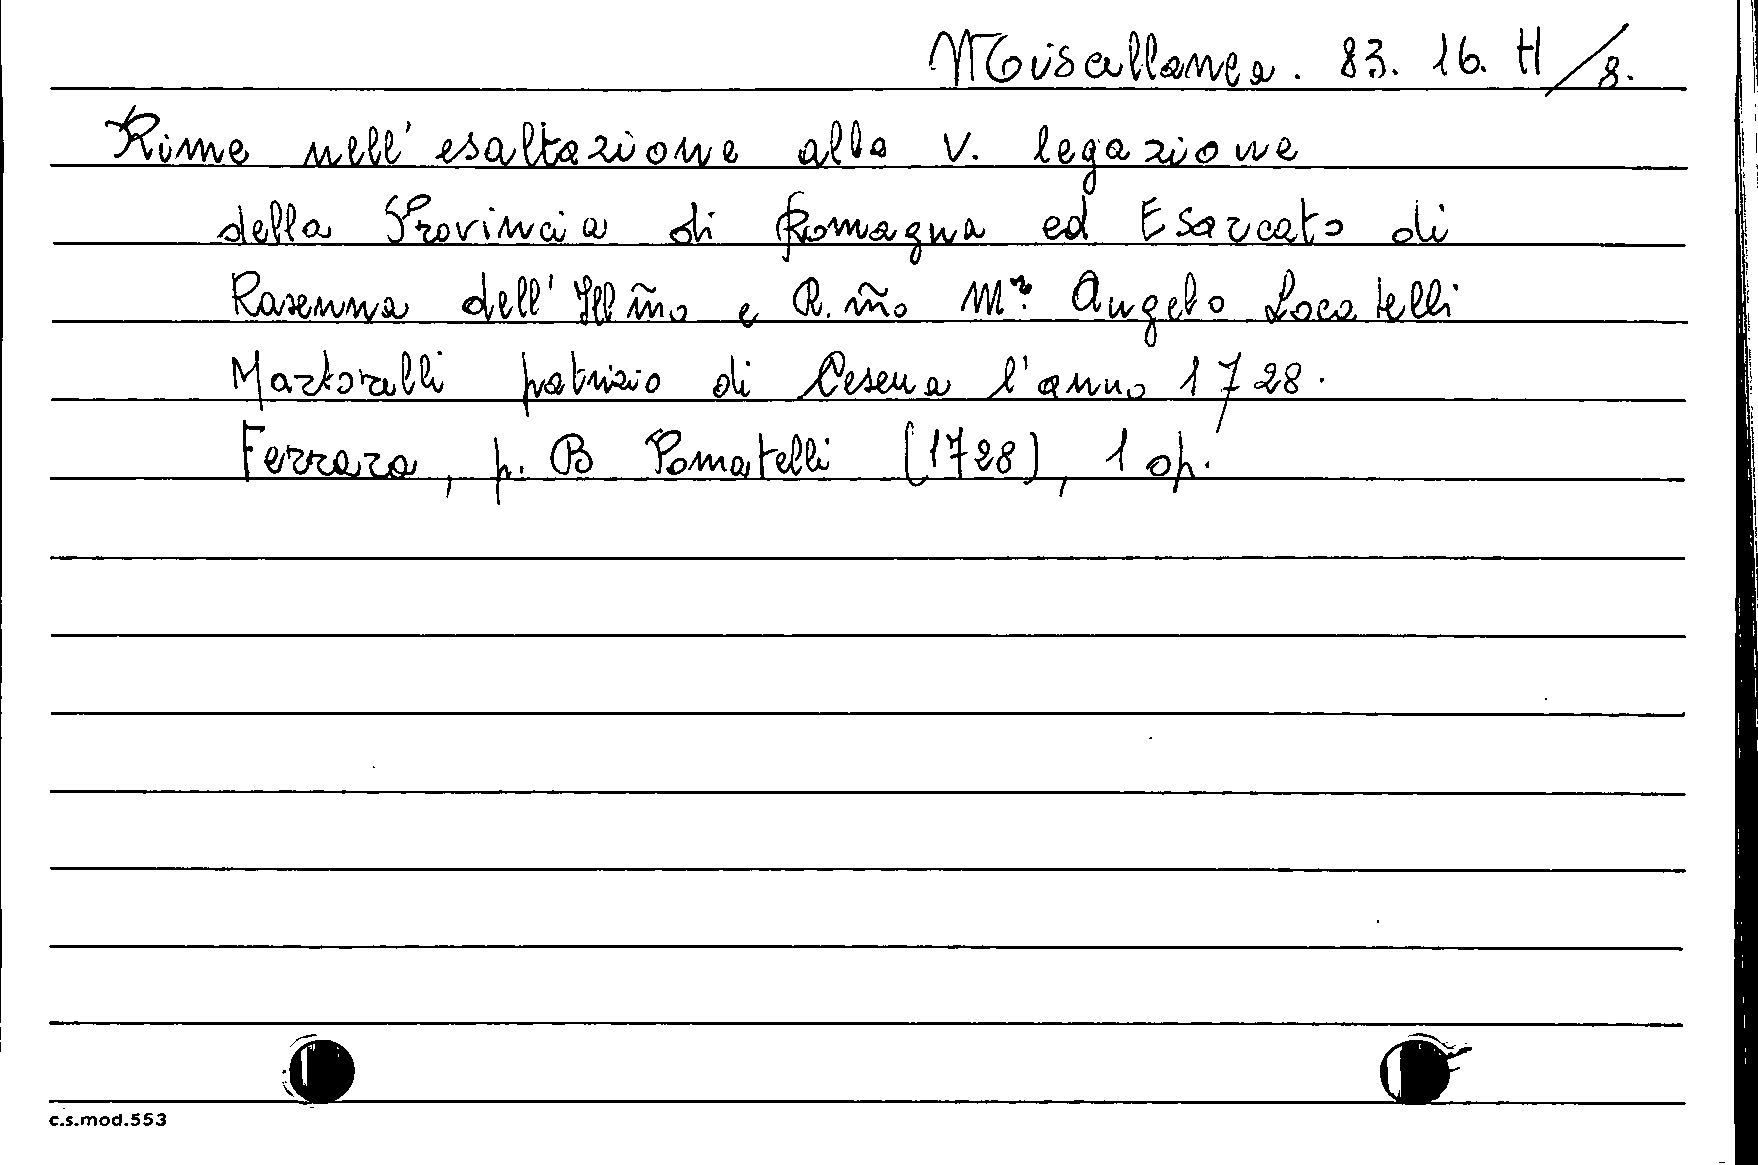 Miscellanea. 83. 16. H/8.
Rime nell' esaltazione alla V. legazione
della Provincia di Romagna ed Esarcato di
Ravenna dell' Illm̃o e R.m̃o Mr. Angelo Locatelli
Martorelli patrizio di Cesena l'anno 1728.
Ferrara, p. B Pomatelli (1728), 1 op.
c.s.mod.553